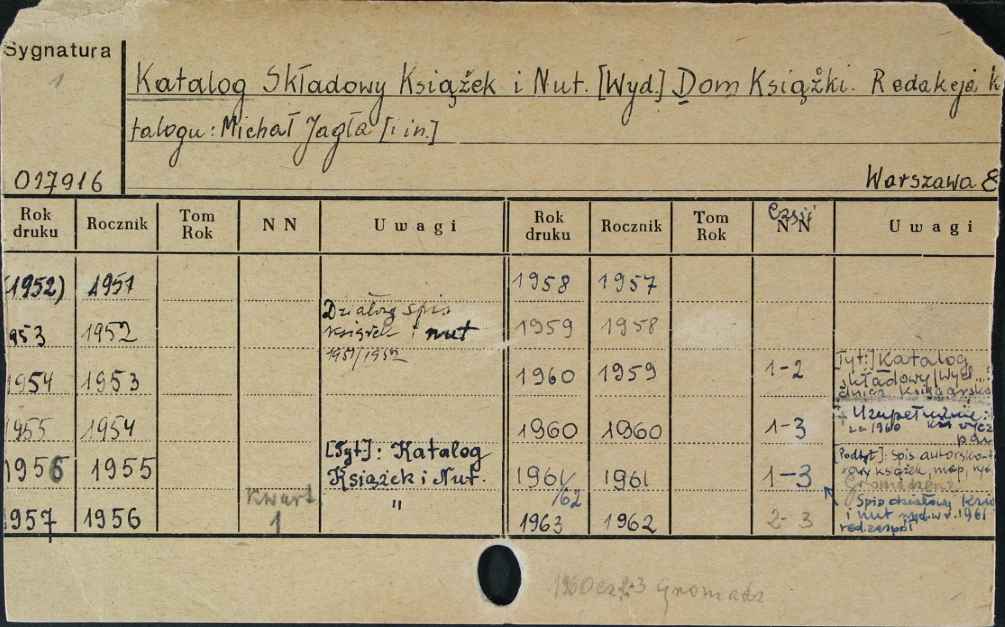 Sygnatura
1
Katalog Składowy Książek i Nut. [Wyd.] Dom Książki. Redakcja k
talogu: Michał Jagła [i in.]
017916
Warszawa
Rok druku Rocznik Tom Rok NN Uwagi Rok druku Rocznik Tom Rok Część NN Uwagi
(1952) 1951 1958 1957
Działowy spis
książek i nut
1951/1952
953 1952 1959 1958
1954 1953 1960 1959 1-2 [Tyt:] Katalog
składowy [Wyd...]
1955 1954 1960 1960 1-3 Uzupełnienie:
za 1960
1956 1955 [Tyt]: Katalog 1961/62 1961 1-3 [Podtyt]: Spis
Książek i Nut.
książek, map,
Gromadzenie
1957 1956 Kwart 1 " 1963 1962 2-3 Spis działowy
i nut wyd. w r. 1961
red. zespół
1960 cz. 2-3 Gromadz